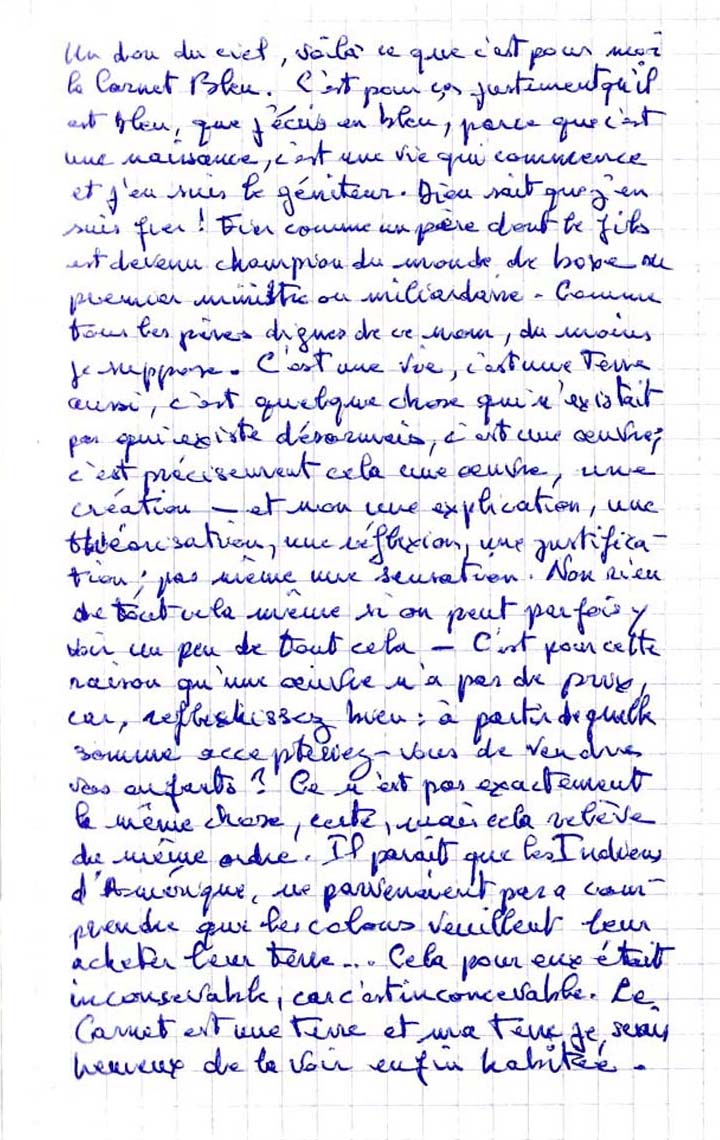 Un don du ciel, voilà ce que c'est pour moi
le Carnet Bleu. C'est pour ça justement qu'il
est bleu, que j'écris en bleu, parce que c'est
une naissance, c'est une vie qui commence
et j'en suis le géniteur. Dieu sait que j'en
suis fier ! Fier comme un père dont le fils
est devenu champion du monde de boxe ou
premier ministre ou miliardaire - Comme
tous les pères dignes de ce nom, du moins
je suppose. C'est une vie, c'est une Terre
aussi, c'est quelque chose qui n'existait
pas qui existe désormais, c'est une œuvre;
c'est précisement cela une œuvre, une
création — et non une explication, une
théorisation, une réflexion, une justifica-
tion; pas même une sensation. Non rien
de tout cela même si on peut parfois y
voir un peu de tout cela — C'est pour cette
raison qu'une œuvre n'a pas de prix,
car, refleskissez bien : à partir de quelle
somme accepteriez-vous de vendre
vos enfants ? Ce n'est pas exactement
la même chose, certe, mais cela relève
du même ordre. Il parait que les Indiens
d'Amérique, ne parvenaient pas a com-
prendre que les colons veuillent leur
acheter leur terre... Cela pour eux était
inconsevable, car c'est inconcevable. Le
Carnet est une Terre et ma Terre je serais
heureux de la voir enfin habitée.